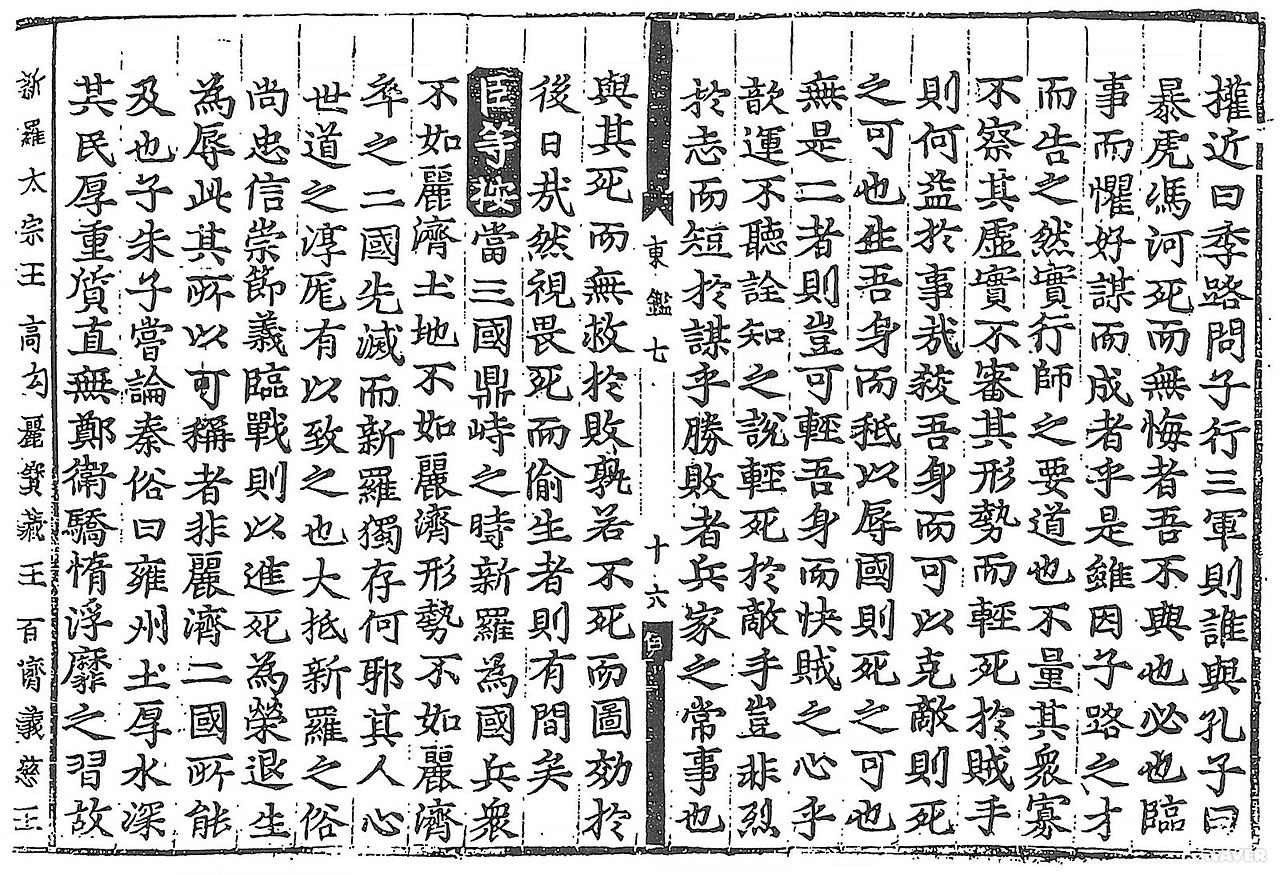 權近曰季路問子行三軍則誰與孔子曰
暴虎馮河死而無悔者吾不與也必也臨
事而懼好謀而成者乎是雖因子路之才
而告之然實行師之要道也不量其衆寡
不察其虛實不審其形勢而輕死於賊手
則何益於事哉殺吾身而可以克敵則死
之可也生吾身而秪以辱國則死之可也
無是二者則豈可輕吾身而快賊之心乎
歆運不聽詮知之說輕死於敵手豈非烈
於志而短於謀乎勝敗者兵家之常事也
東鑑七
十六
與其死而無救於敗孰若不死而圖効於
後日哉然視畏死而偷生者則有間矣
臣等按當三國鼎峙之時新羅爲國兵衆
不如麗濟土地不如麗濟形勢不如麗濟
卒之二國先滅而新羅獨存何耶其人心
世道之淳厖有以致之也大抵新羅之俗
尚忠信崇節義臨戰則以進死爲榮退生
爲辱此其所以可稱者非麗濟二國所能
及也子朱子嘗論秦俗曰雍州土厚水深
其民厚重質直無鄭衛驕惰浮靡之習故
新羅太宗王 高勾麗寶藏王 百濟義慈王
NAVER